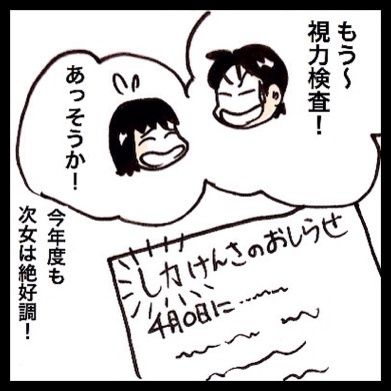 もう～
視力検査！
あっそうか！
し力けんさのおしらせ
4月〇日に……
今年度も
次女は絶好調！